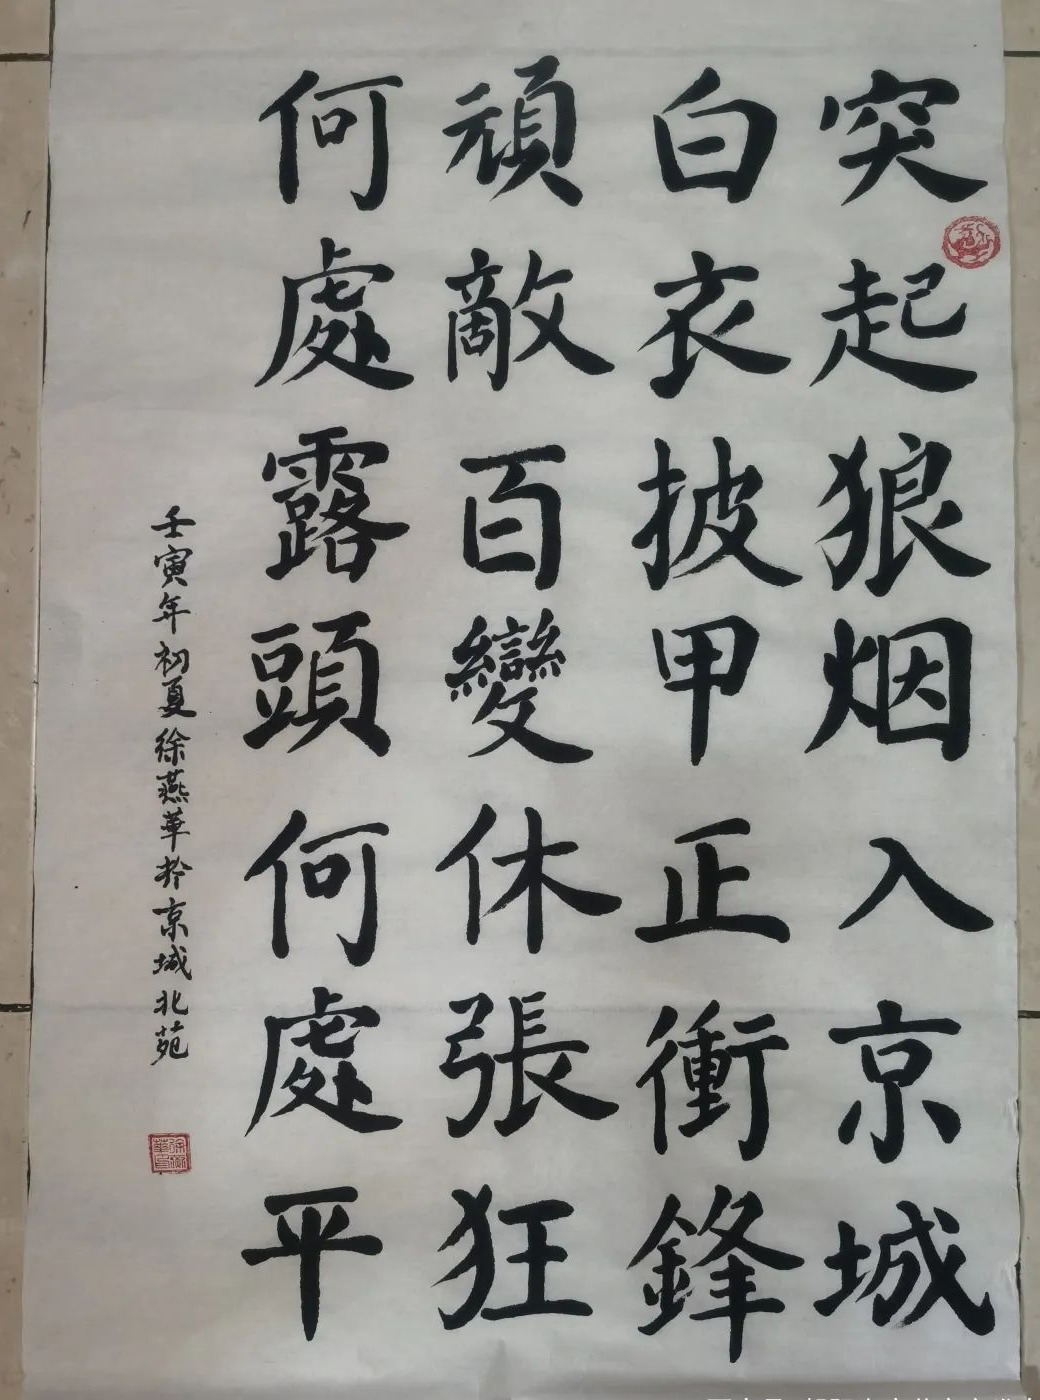 突起狼烟入京城
白衣披甲正衝鋒
頑敵百變休張狂
何處露頭何處平
壬寅年初夏徐燕華於京城北苑